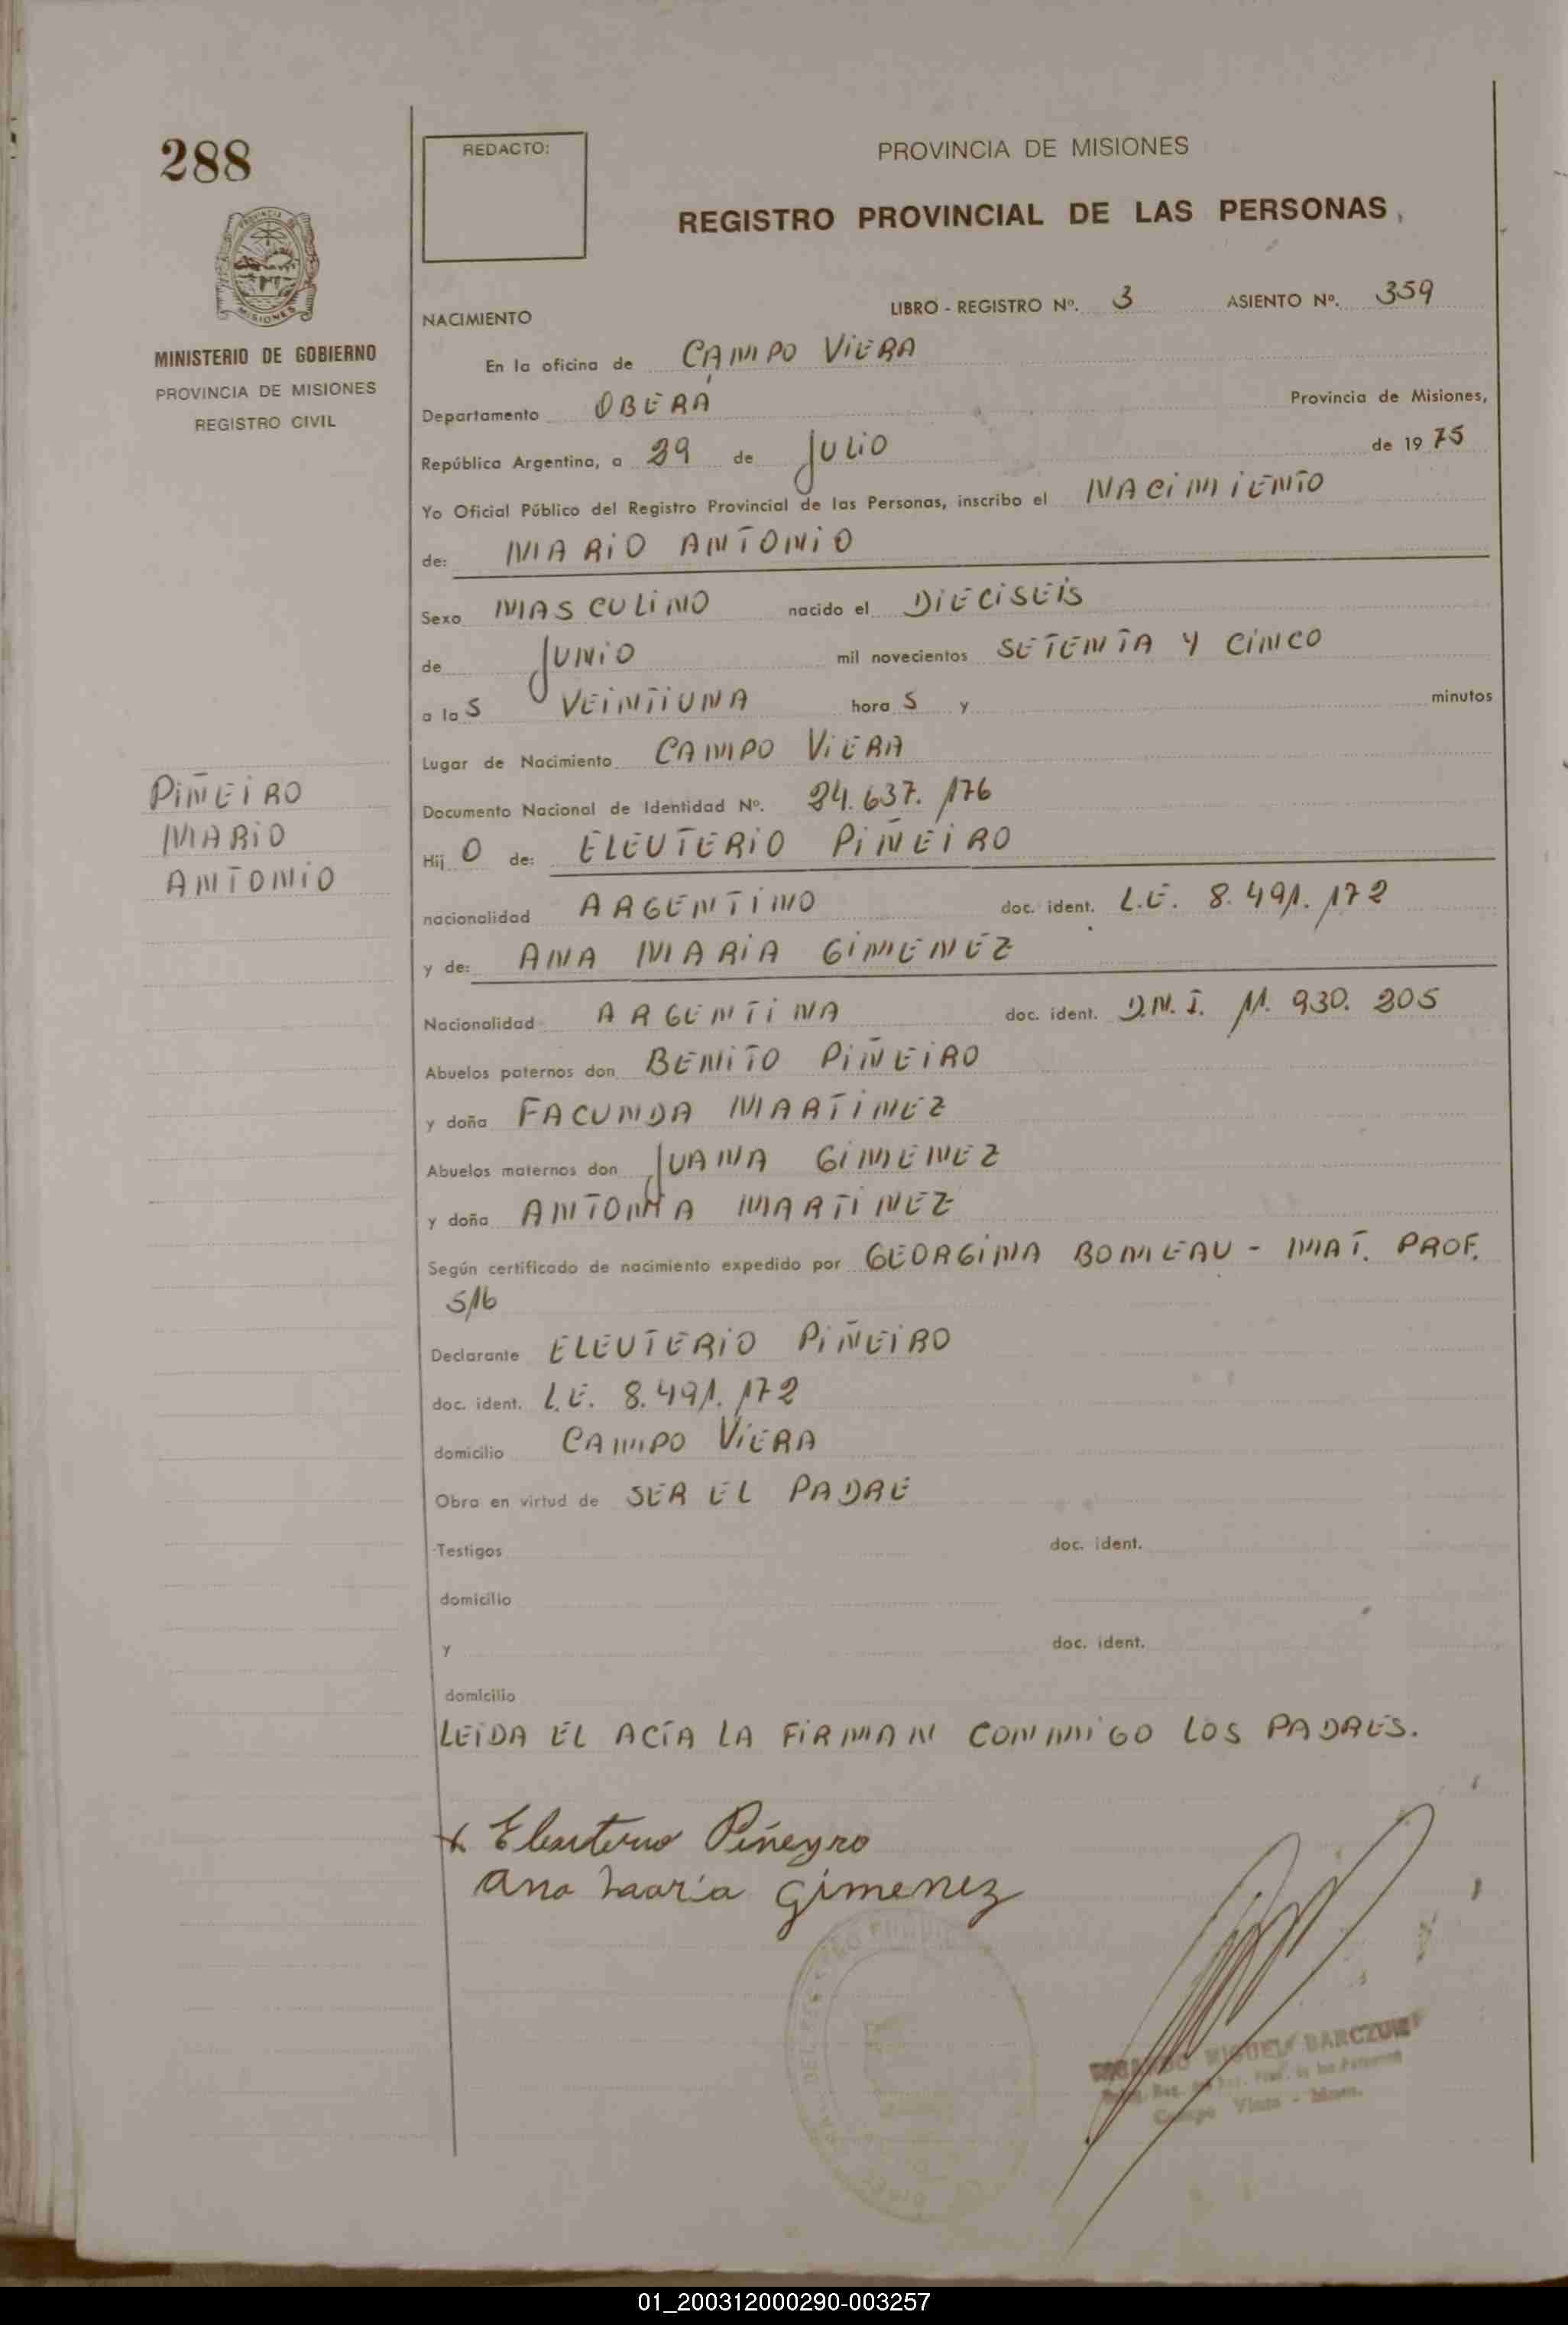 288
REDACTO:
PROVINCIA DE MISIONES
REGISTRO PROVINCIAL DE LAS PERSONAS
MISIONES
MINISTERIO DE GOBIERNO
PROVINCIA DE MISIONES
REGISTRO CIVIL
NACIMIENTO
LIBRO - REGISTRO Nº. 3 ASIENTO Nº. 359
En la oficina de CAMPO VIERA
Departamento OBERÁ Provincia de Misiones,
República Argentina, a 29 de JULIO de 1975
Yo Oficial Público del Registro Provincial de las Personas, inscribo el NACIMIENTO
de: MARIO ANTONIO
Sexo MASCULINO nacido el DIECISEIS
de JUNIO mil novecientos SETENTA Y CINCO
a las VEINTIUNA horas y minutos
Lugar de Nacimiento CAMPO VIERA
Documento Nacional de Identidad Nº. 24.637.176
Hijo de: ELEUTERIO PIÑEIRO
nacionalidad ARGENTINO doc. ident. L.E. 8.491.172
y de: ANA MARIA GIMENEZ
Nacionalidad ARGENTINA doc. ident. D.N.I. 11.930.205
Abuelos paternos don BENITO PIÑEIRO
y doña FACUNDA MARTINEZ
Abuelos maternos don JUANA GIMENEZ
y doña ANTONIA MARTINEZ
Según certificado de nacimiento expedido por GEORGINA BONNEAU - MAT. PROF.
516
Declarante ELEUTERIO PIÑEIRO
doc. ident. L.E. 8.491.172
domicilio CAMPO VIERA
Obra en virtud de SER EL PADRE
Testigos doc. ident.
domicilio
y doc. ident.
domicilio
LEIDA EL ACTA LA FIRMAN CONMIGO LOS PADRES.
PIÑEIRO
MARIO
ANTONIO
x Eleuterio Piñeyro
Ana Maria Gimenez
MIGUEL
Campo Viera - Mnes.
01_200312000290-003257